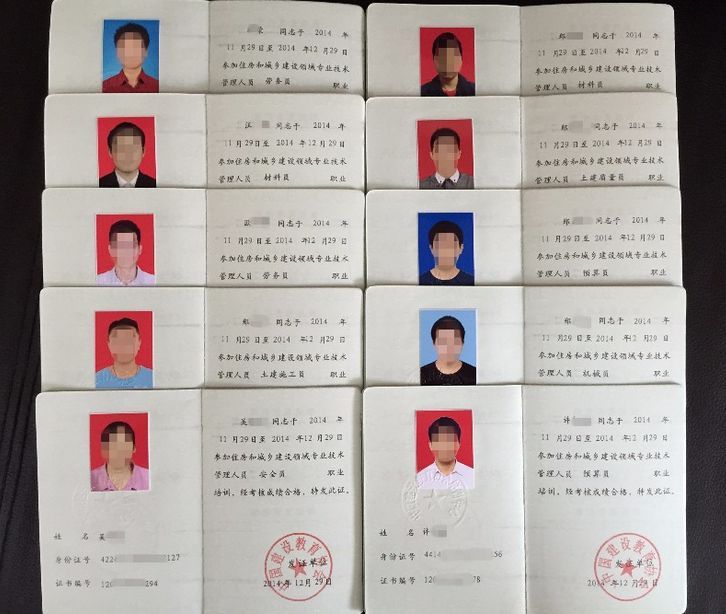 荣 同志于 2014 年
11 月29日至 2014 年12 月29日
参加住房和城乡建设领域专业技术
管理人员 劳务员 职业
郑 同志于 2014 年
11 月29日至 2014 年12 月29日
参加住房和城乡建设领域专业技术
管理人员 材料员 职业
汪 同志于 2014 年
11 月29日至 2014 年12月29日
参加住房和城乡建设领域专业技术
管理人员 材料员 职业
郑 同志于 2014 年
11 月29日至 2014 年12月29日
参加住房和城乡建设领域专业技术
管理人员 土建质量员 职业
同志于 2014 年
11 月29日至 2014 年12月29日
参加住房和城乡建设领域专业技术
管理人员 劳务员 职业
郑 同志于 2014 年
11 月29日至 2014 年12月29日
参加住房和城乡建设领域专业技术
管理人员 预算员 职业
郑 同志于 2014 年
11 月29日至 2014 年12月29日
参加住房和城乡建设领域专业技术
管理人员 土建施工员 职业
郑 同志于 2014 年
11 月29日至 2014 年12月29日
参加住房和城乡建设领域专业技术
管理人员 机械员 职业
吴 同志于 2014 年
11月29日至 2014 年 12月29日
参加住房和城乡建设领域专业技术
管理人员 安全员 职业
培训，经考核成绩合格，特发此证。
姓 名 吴
身份证号 422 127
证书编号 120 294
中国建设教育协会
发证单位
2014 年12月29日
许 同志于 2014 年
11月29日至 2014 年 12月29日
参加住房和城乡建设领域专业技术
管理人员 预算员 职业
培训，经考核成绩合格，特发此证。
姓 名 许
身份证号 441 56
证书编号 120 78
中国建设教育协会
发证单位
2014 年12月29日